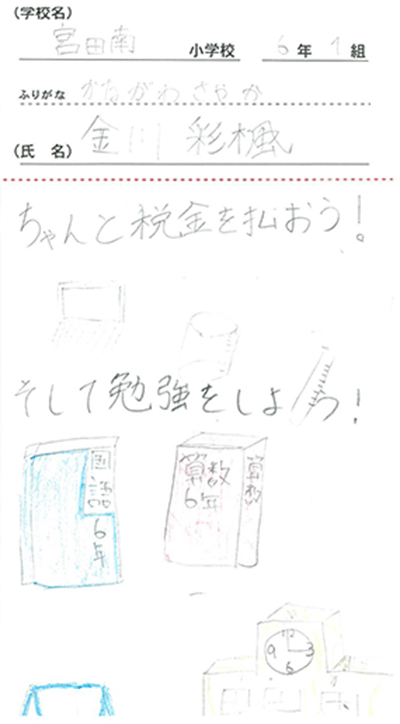 (学校名)
宮田南 小学校 6年1組
ふりがな かながわ さやか
(氏 名) 金川 彩楓
ちゃんと税金を払おう!
そして勉強をしよう!
国語6年
算数
6年
算数
12
9 3
6